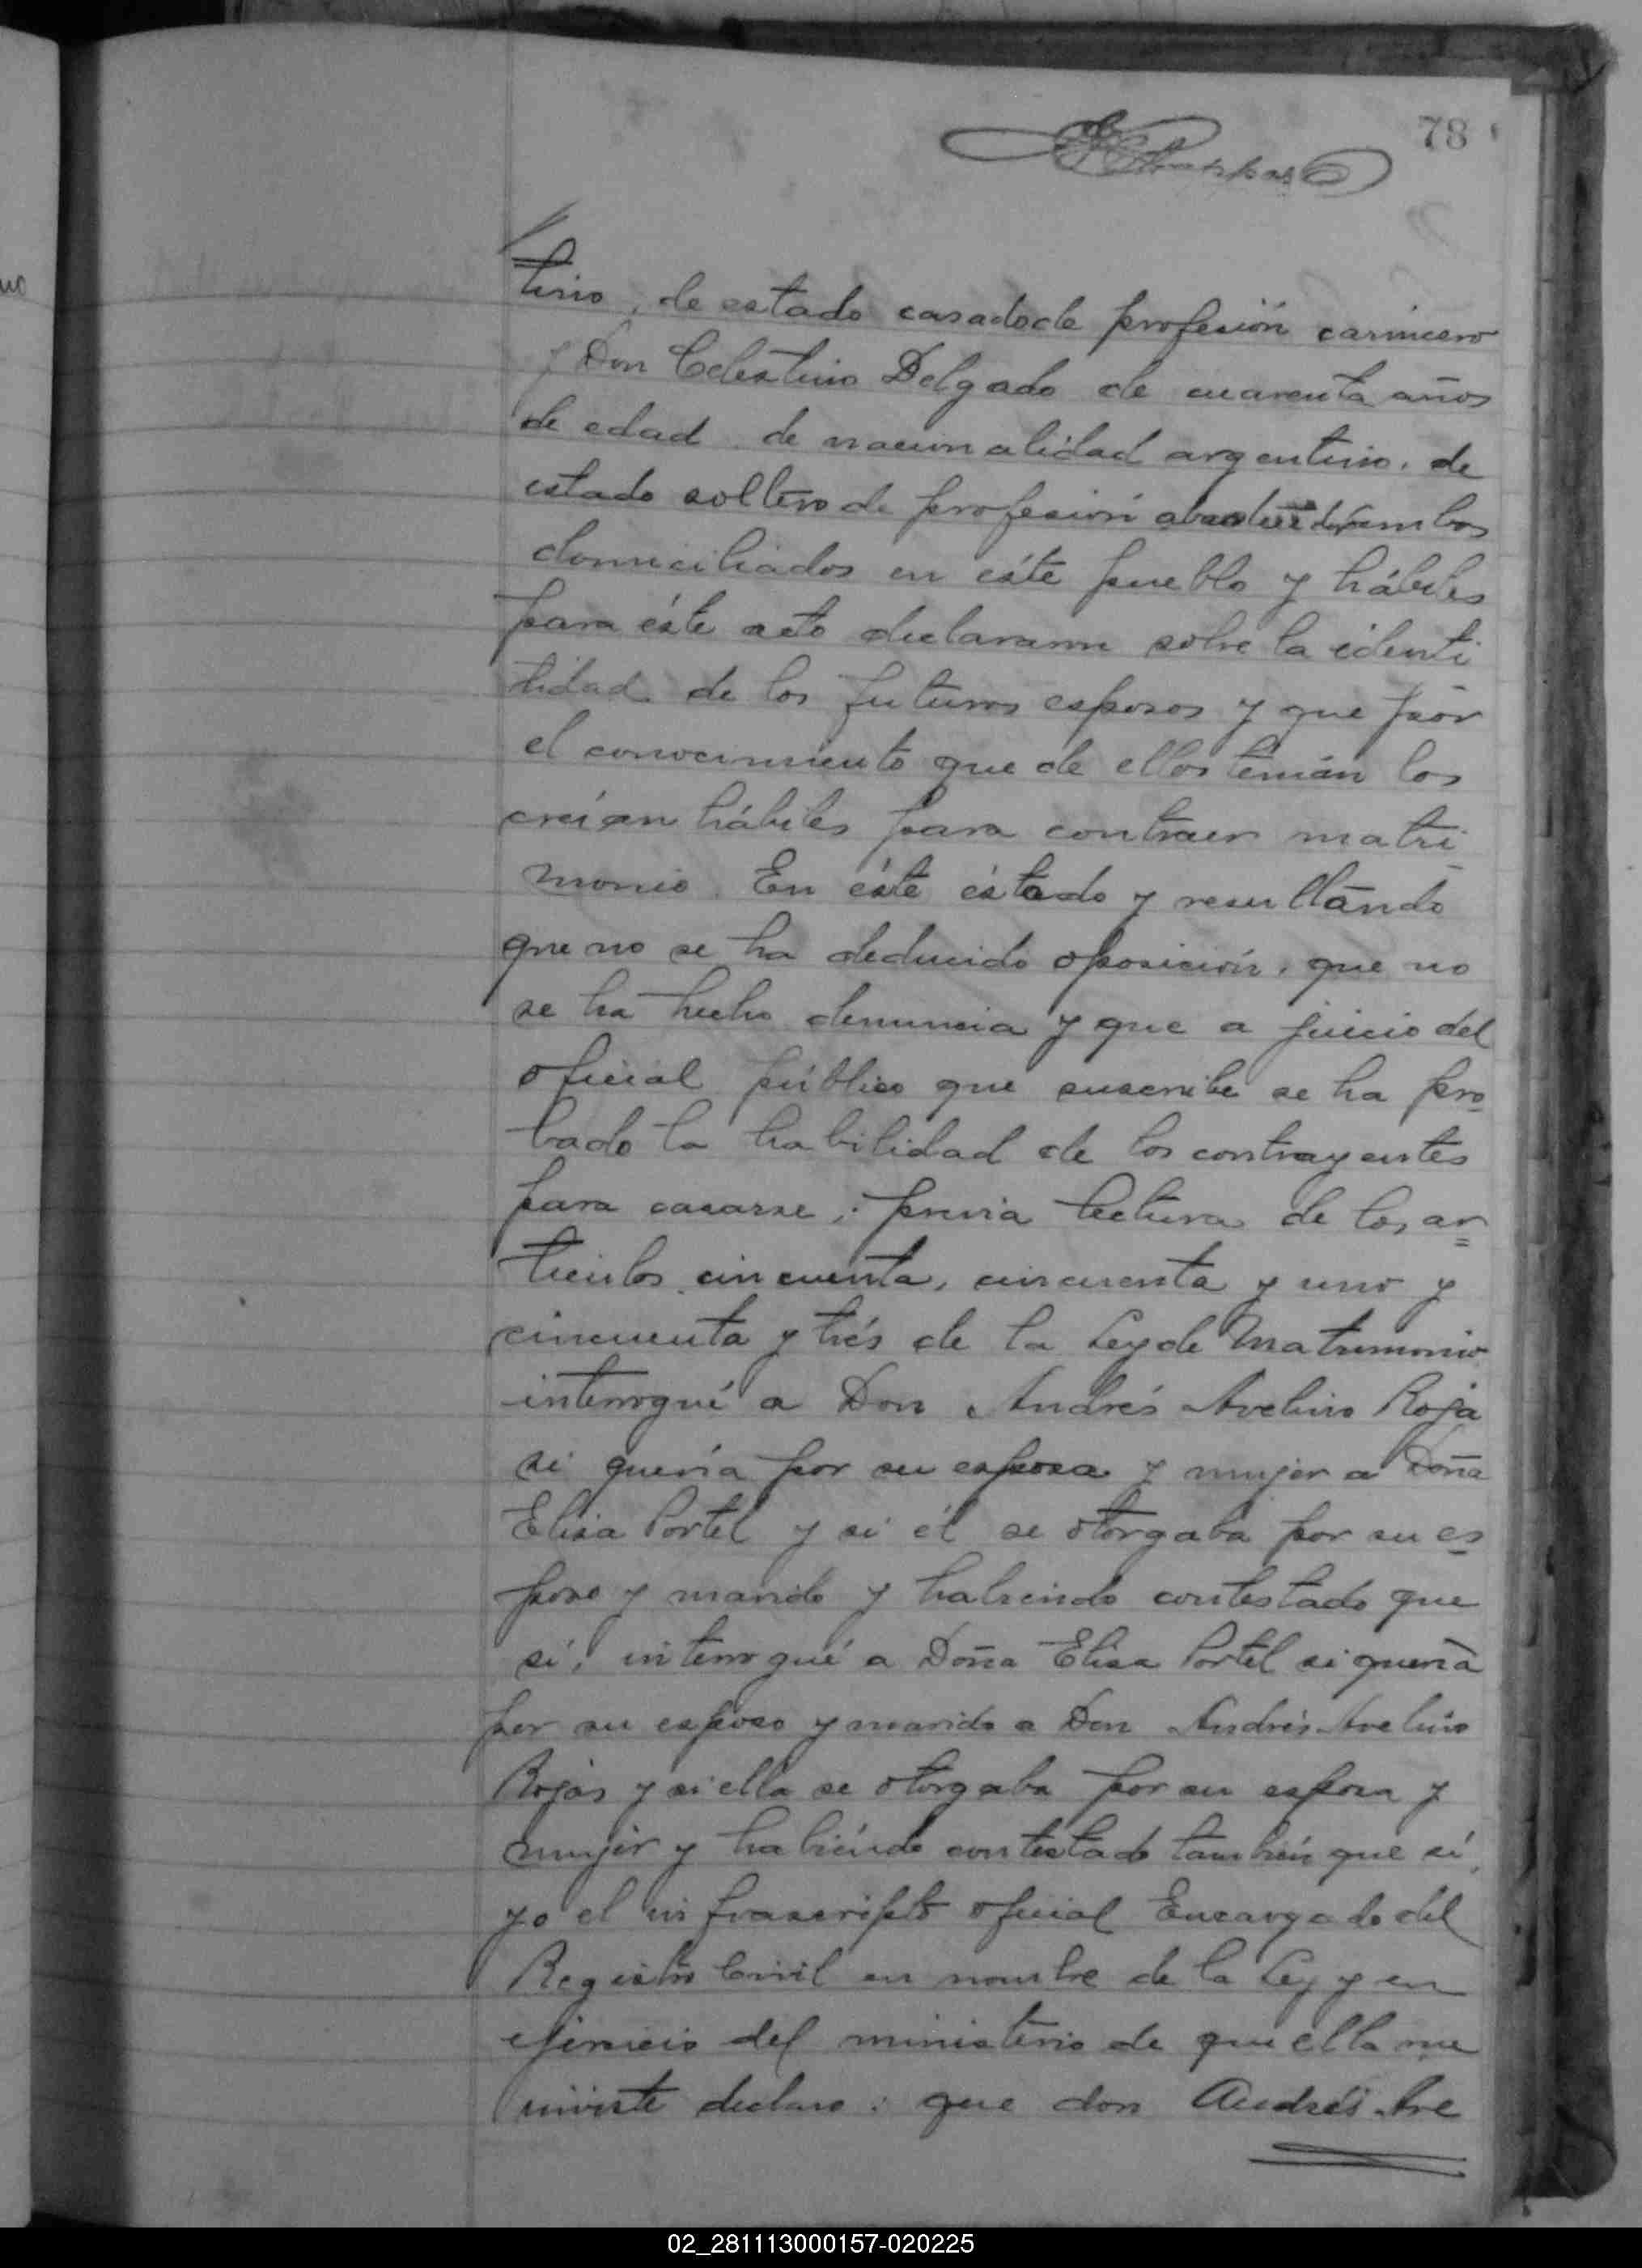 78
tino, de estado casado de profesión carnicero
y Don Celestino Delgado de cuarenta años
de edad de nacionalidad argentino, de
estado soltero de profesión ambos
domiciliados en éste pueblo y hábiles
para éste acto declararon sobre la identi
tidad de los futuros esposos y que por
el conocimiento que de ellos tenían los
creían hábiles para contraer matri-
monio. En éste éstado y resultando
que no se ha deducido oposición, que no
se ha hecho denuncia y que a juicio del
oficial público que suscribe se ha pro-
bado la habilidad de los contrayentes
para casarse; previa lectura de los ar=
tículos cincuenta, cincuenta y uno y
cincuenta y trés de la Ley de Matrimonio
interrogué a Don Andrés Avelino Roja
si quería por su esposa y mujer a Doña
Elisa Portel y si él se otorgaba por su es-
poso y marido y habiendo contestado que
sí, interrogué a Doña Elisa Portel si quería
por su esposo y marido a Don Andrés Avelino
Rojas y si ella se otorgaba por su esposa y
mujer y habiéndo contestado también que sí,
yo el infrascripto oficial Encargado del
Registro Civil en nombre de la Ley y en
ejercicio del ministerio de que ella me
inviste declaro: que don Andrés Ave
02_281113000157-020225